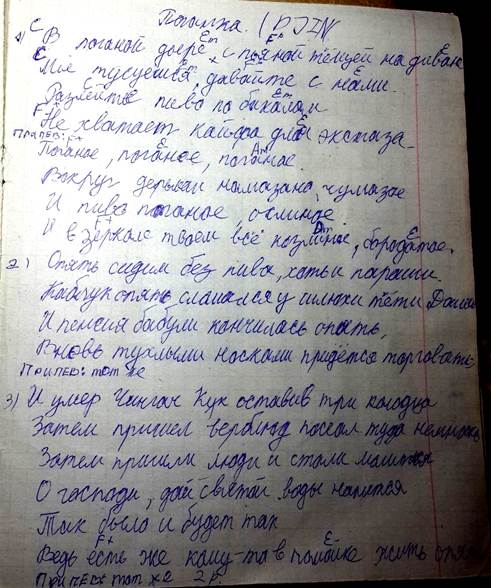 Поганка. / DJIN
1) C В поганой дыре Em с пьяной тёщей на диван
C Мы тусуемся давайте с нами.
Разлейте пиво по бокалам
F Не хватает кайфа для экстаза
Припев: Поганое, поганое, поганое Am
Вокруг дерьмом намазано, чумазое
И пиво поганое, ослиное
И в зеркале твоем всё козлиное, бородатое.
2) Опять сидим без пива, хоть и паршиво.
опять у шлюхи тёти Даши
И пенсия бабули кончилась опять,
Вновь тухлыми носками придётся торговать
Припев: тот же
3) И умер Чингач Кук оставив три колодца
Затем пришел верблюд поссал туда немножко
Затем пришли люди и стали молиться
О господи, дай святой воды напиться
Так было и будет так
Ведь есть же кому-то в помойке жить опять
Припев: тот x2 2р.